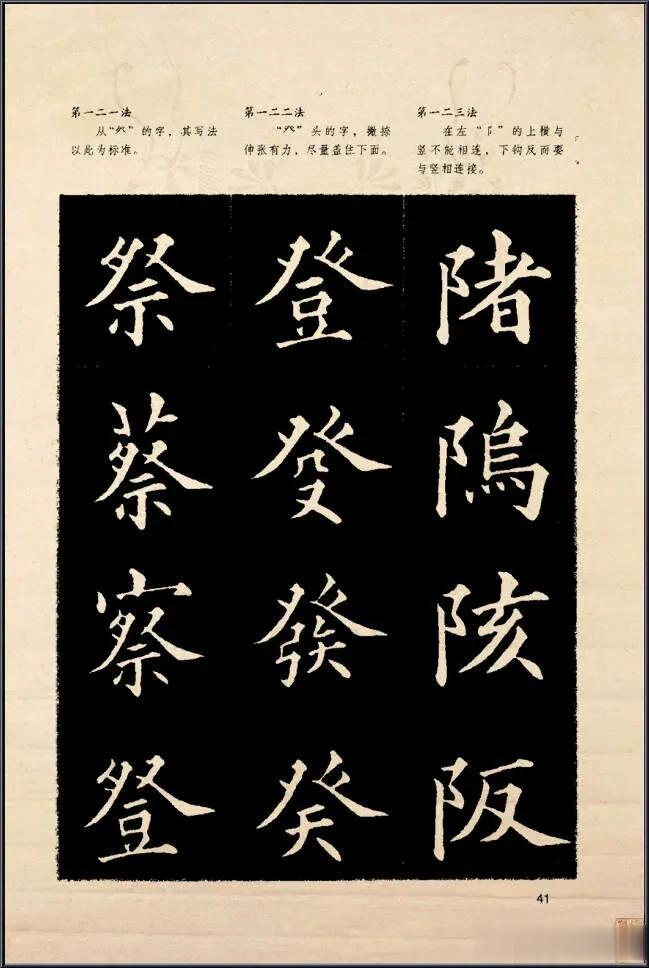 第一二一法
从“”的字，其写法
以此为标准。
第一二二法
“癶”头的字，撇捺
伸张有力，尽量盖住下面。
第一二三法
在左“阝”的上横与
竖不能相连，下钩反而要
与竖相连接。
祭 登 陼
蔡 癹 隖
察 發 陔
豋 癸 阪
41